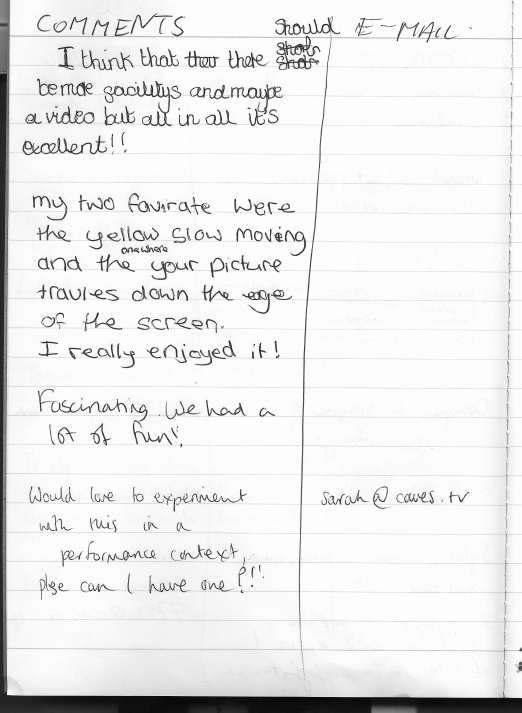 COMMENTS should E-MAIL.
I think that ther there
be moe facilitys and maybe
a video but all in all it's
excellent!!
my two favirate were
the yellow slow moving
one where
and the your picture
travles down the edge
of the screen.
I really enjoyed it!
Fascinating. We had a
lot of fun!
Would love to experiment sarah@caves.tv
with this in a
performance context,
plse can I have one?!!